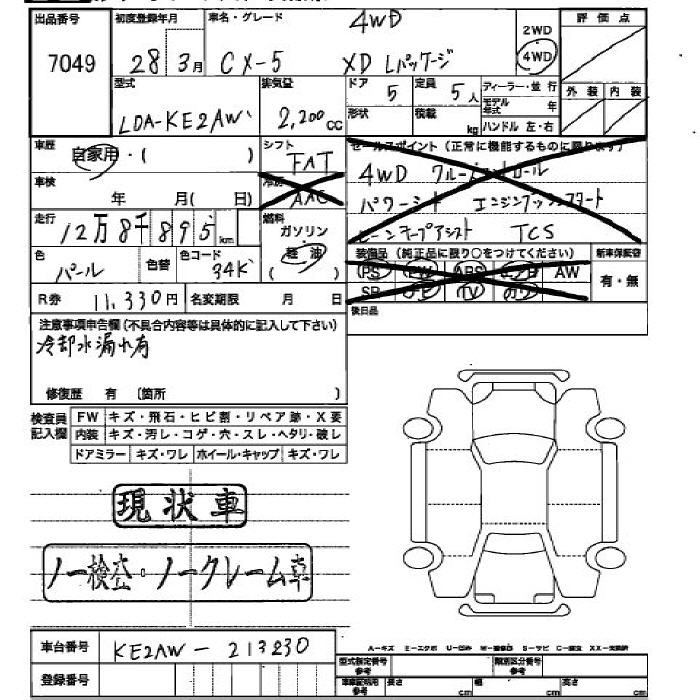 出品番号 初度登録年月 車名・グレード 4WD 2WD 評価点
7049 28年3月 CX-5 XD Lパッケージ 4WD
型式 排気量 ドア 5 定員 5人 ディーラー・並行 外装 内装
LDA-KE2AW 2,200cc 形状 積載 kg モデル年式 年
ハンドル 左・右
車歴 自家用・( ) シフト FAT セールスポイント(正常に機能するものに限ります)
車検 年 月( 日) 冷房 AAC 4WD クルーズコントロール
パワーシート エンジンプッシュスタート
走行 12万8千895km 燃料 ガソリン 軽油 レーンキープアシスト TCS
色 パール 色替 色コード 34K 装備品(純正品に限り○をつけてください) 新車保証書
PS PW ABS エアB AW 有・無
R券 11,330円 名変期限 月 日 SR ナビ TV カワ
注意事項申告欄(不具合内容等は具体的に記入して下さい) 後日品
冷却水漏れ有
修復歴 有 〔箇所 〕
検査員記入欄 FW キズ・飛石・ヒビ割・リペア跡・X要
内装 キズ・汚レ・コゲ・穴・スレ・ヘタリ・破レ
ドアミラー キズ・ワレ ホイール・キャップ キズ・ワレ
現状車
ノー検査・ノークレーム車
車台番号 KE2AW-213230
A-キズ E-エクボ U-凹み W-補修跡 S-サビ C-腐食 XX-交換済
登録番号 型式指定番号 参考 類別区分番号 参考
車庫証明用 参考 長さ cm 幅 cm 高さ cm